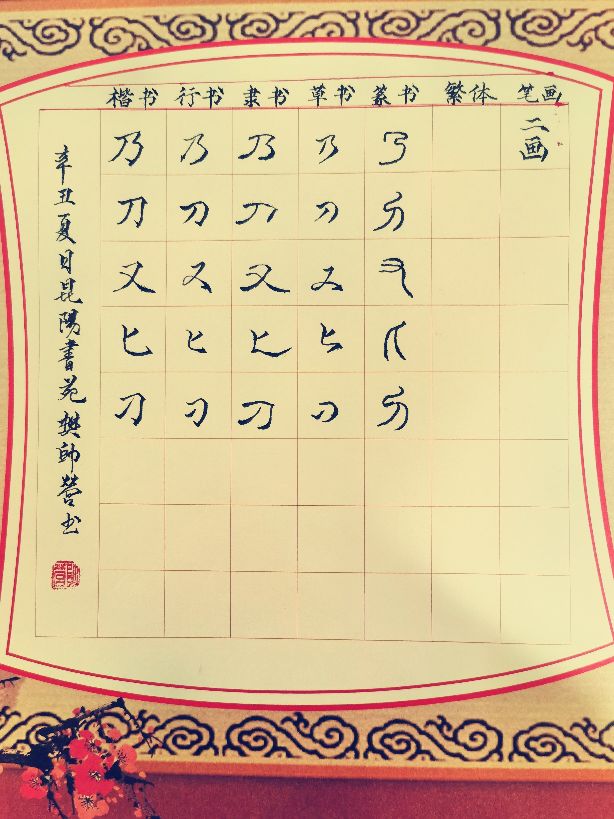 楷书 行书 隶书 草书 篆书 繁体 笔画
二画
乃 乃 乃 乃 乃
刀 刀 刀 刀 刀
又 又 又 又 又
匕 匕 匕 匕 匕
刁 刁 刁 刁 刁
辛丑夏日昆陽書苑樊帥營书